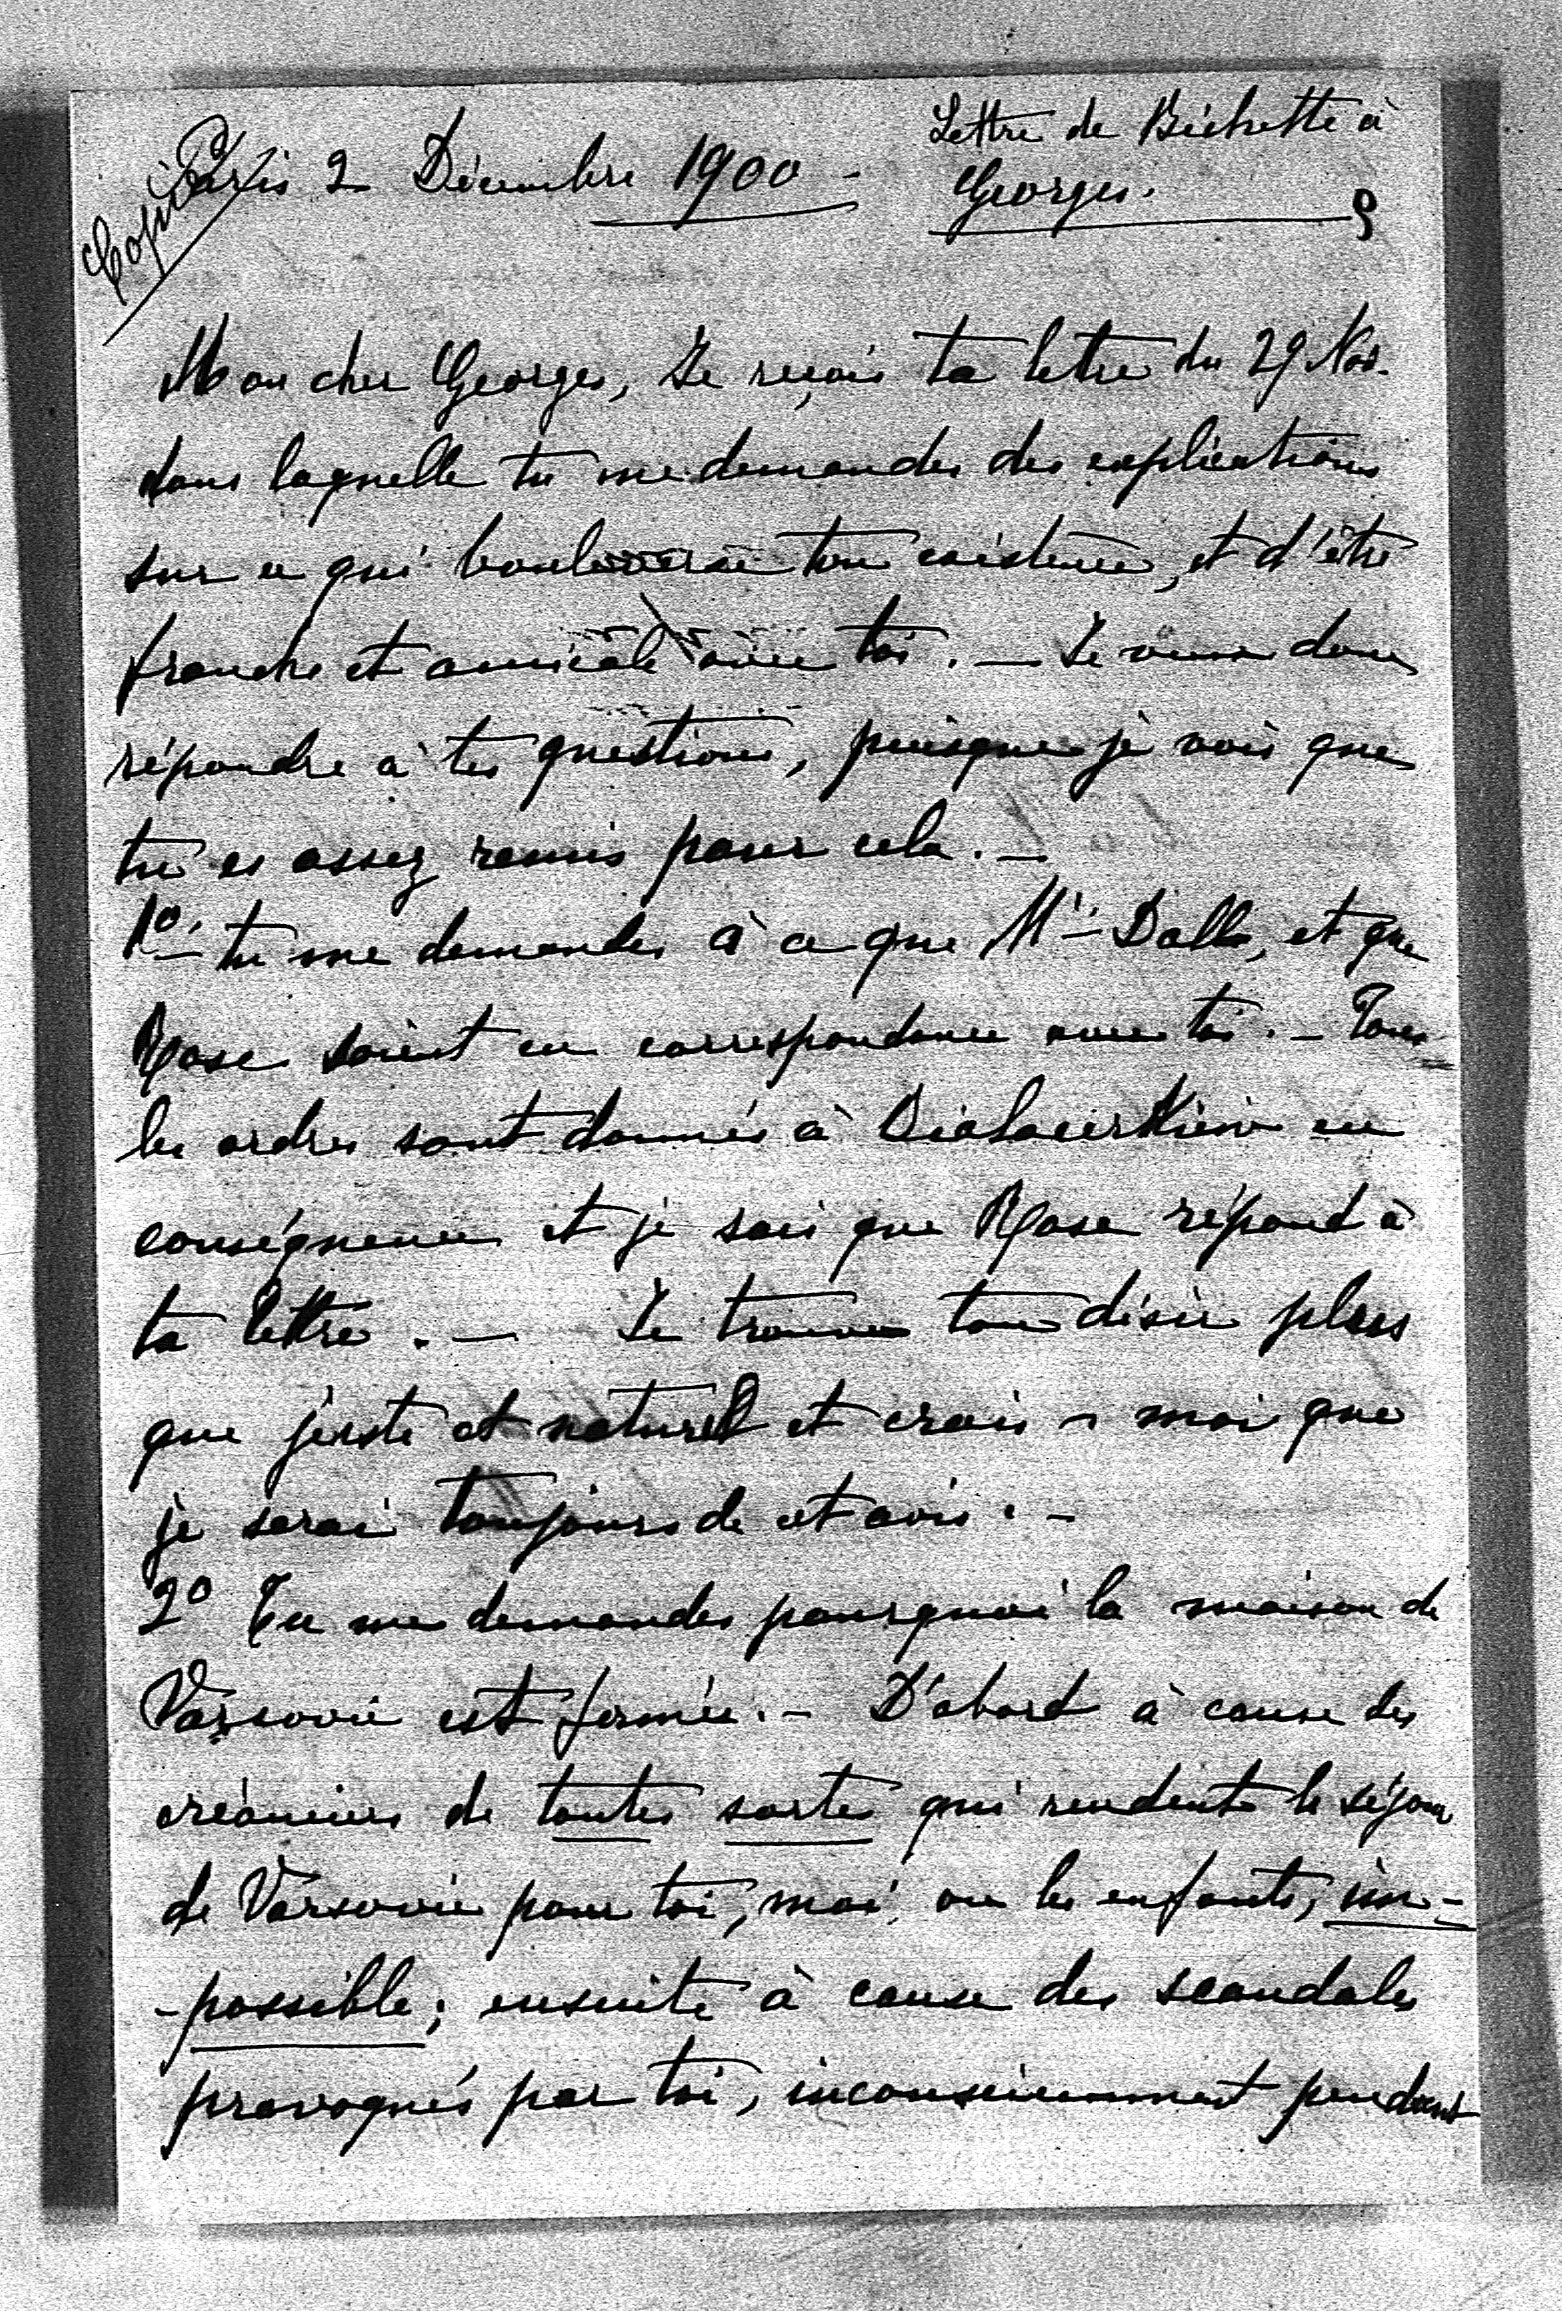 Copie
Paris 2 Décembre 1900 -
Lettre de Bichette à
Georges.
Mon cher Georges, Je reçois ta lettre du 29 Nov.
dans laquelle tu me demandes des explications
sur ce qui bouleverse ton existence, et d'être
franche et amicale avec toi. — Je viens donc
répondre à tes questions, puisque je vois que
tu es assez remis pour cela. —
1º- tu me demandes à ce que Mr- Dalle, et que
Rose soient en correspondance avec toi. - Tous
les ordres sont donnés à en
conséquence et je sais que Rose répond à
ta lettre. — Je trouve ton désir plus
que juste et naturel et crois - moi que
je serai toujours de cet avis. -
2º Tu me demandes pourquoi la maison de
Varsovie est fermée. - D'abord à cause des
créanciers de toutes sortes qui rendent le séjour
de Varsovie pour toi, moi, ou les enfants, im-
-possible; ensuite à cause des scandales
provoqués par toi, inconsciemment pendant